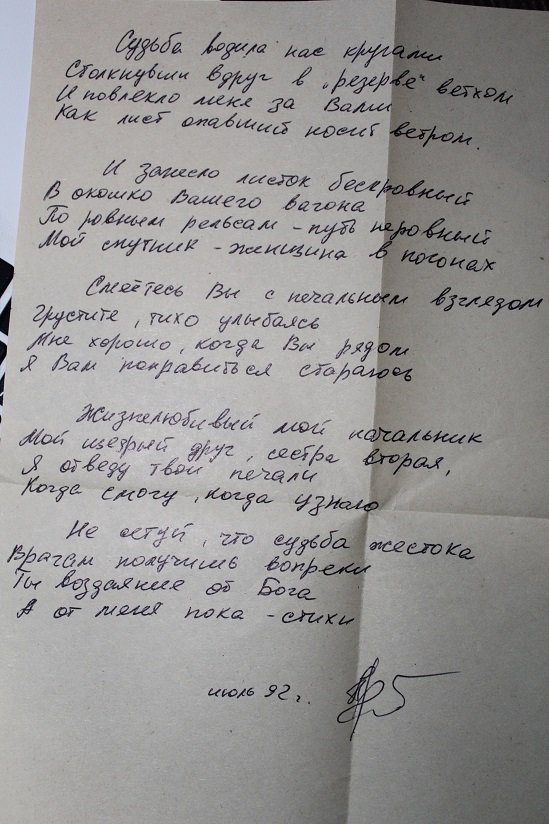 Судьба водила нас кругами
Столкнувши вдруг в „резерве“ ветхом
И повлекло меня за Вами
Как лист опавший носит ветром.
И занесло листок бескровный
В окошко Вашего вагона
По ровным рельсам - путь неровный
Мой спутник - женщина в погонах
Смеётесь Вы с печальным взглядом
Грустите, тихо улыбаясь
Мне хорошо, когда Вы рядом
Я Вам понравиться стараюсь
Жизнелюбивый мой начальник
Мой щедрый друг, сестра вторая,
Я отведу твои печали
Когда смогу, когда узнаю
Не сетуй, что судьба жестока
Врагам получишь вопреки
Ты воздаяние от Бога
А от меня пока - стихи
июль 92 г.